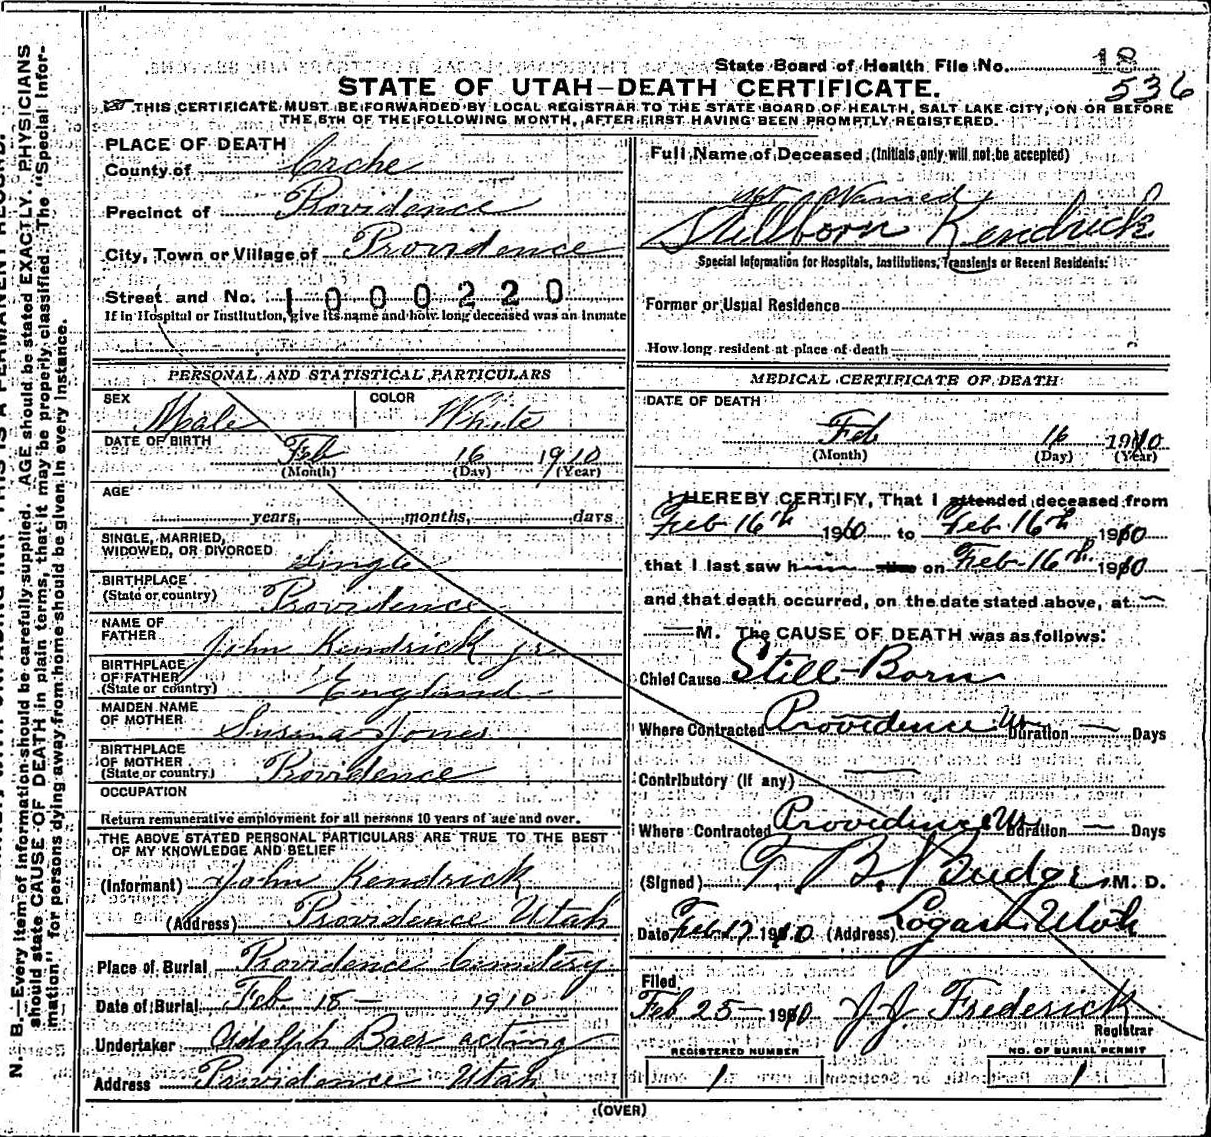 State Board of Health File No. 18
536
STATE OF UTAH—DEATH CERTIFICATE.
THIS CERTIFICATE MUST BE FORWARDED BY LOCAL REGISTRAR TO THE STATE BOARD OF HEALTH, SALT LAKE CITY, ON OR BEFORE
THE 5TH OF THE FOLLOWING MONTH, AFTER FIRST HAVING BEEN PROMPTLY REGISTERED.
PLACE OF DEATH
County of Cache
Precinct of Providence
City, Town or Village of Providence
Street and No. 1000220
If in Hospital or Institution, give its name and how long deceased was an inmate
PERSONAL AND STATISTICAL PARTICULARS
SEX Male COLOR White
DATE OF BIRTH Feb 16 1910
(Month) (Day) (Year)
AGE
years, months, days
SINGLE, MARRIED,
WIDOWED, OR DIVORCED Single
BIRTHPLACE
(State or country) Providence
NAME OF
FATHER John Kendrick jr
BIRTHPLACE
OF FATHER
(State or country) England
MAIDEN NAME
OF MOTHER Susena Jones
BIRTHPLACE
OF MOTHER
(State or country) Providence
OCCUPATION
Return remunerative employment for all persons 10 years of age and over.
THE ABOVE STATED PERSONAL PARTICULARS ARE TRUE TO THE BEST
OF MY KNOWLEDGE AND BELIEF
(Informant) John Kendrick
(Address) Providence Utah
Place of Burial Providence Cemetery
Date of Burial Feb. 18 — 1910
Undertaker Adolph Baer acting
Address Providence Utah
Full Name of Deceased (Initials only will not be accepted)
not Named
Stillborn Kendrick
Special Information for Hospitals, Institutions, Transients or Recent Residents:
Former or Usual Residence
How long resident at place of death
MEDICAL CERTIFICATE OF DEATH
DATE OF DEATH
Feb 16 1910
(Month) (Day) (Year)
I HEREBY CERTIFY, That I attended deceased from
Feb 16th 1910 to Feb 16th 1910
that I last saw h on Feb 16th 1910
and that death occurred, on the date stated above, at —
— M. The CAUSE OF DEATH was as follows:
Chief Cause Still-Born
Where Contracted Providence Ut Duration — Days
Contributory (if any) —
Where Contracted Providence Ut Duration — Days
(Signed) T. B. Budge M. D.
Date Feb 17 1910 (Address) Logan Utah
Filed
Feb 25 — 1910 J J Frederick
Registrar
REGISTERED NUMBER NO. OF BURIAL PERMIT
1 1
(OVER)
N. B.—Every item of information should be carefully supplied. AGE should be stated EXACTLY. PHYSICIANS
should state CAUSE OF DEATH in plain terms, that it may be properly classified. The "Special Infor-
mation" for persons dying away from home should be given in every instance.